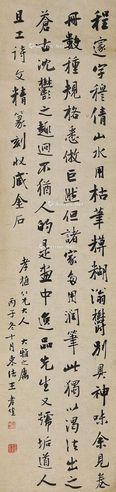 程邃字穆倩山水用枯筆模糊滃鬱別具神味余見卷
冊數種規格悉倣巨然但諸家多用潤筆此獨以渴法出之
蒼古沈鬱之趣迥不猶人的是畫中逸品先生又號垢道人
且工詩文精篆刻收藏金石
孝 先大人 大雅之屬
丙子冬十月 王